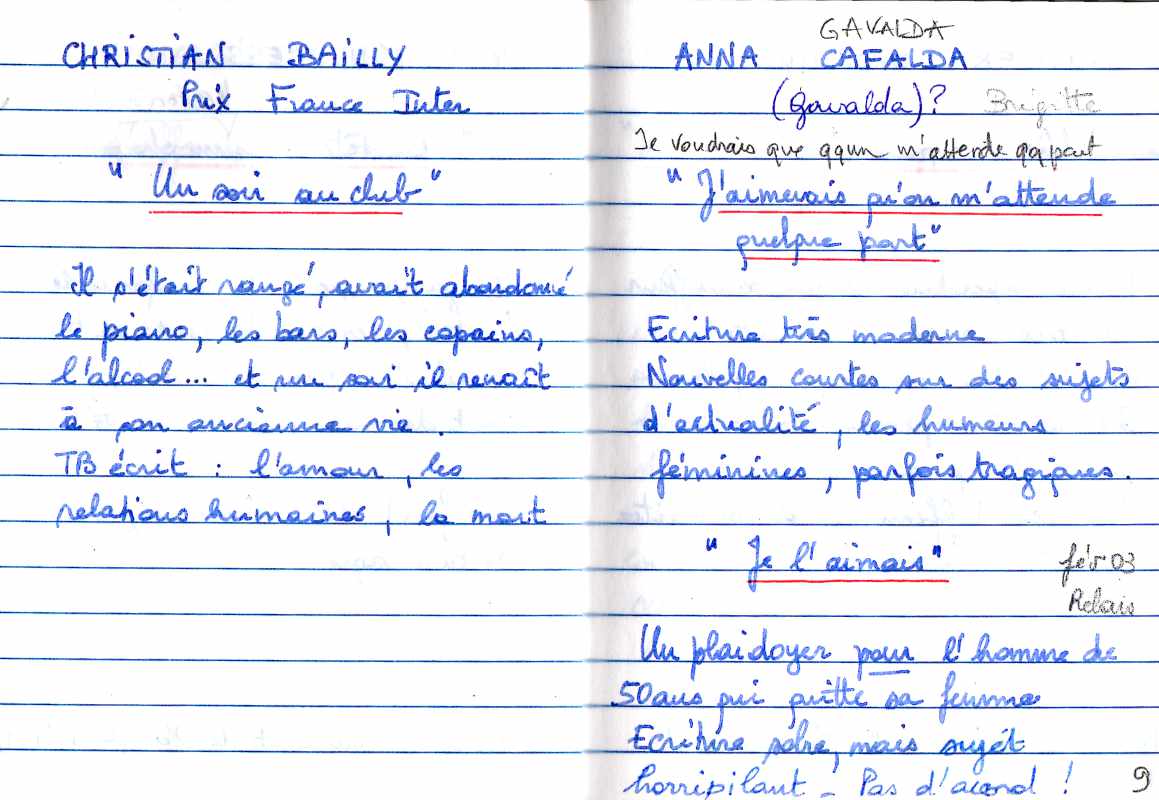 CHRISTIAN BAILLY
Prix France Inter
"Un soir au club"
Il s'était rangé, avait abandonné
le piano, les bars, les copains,
l'alcool... et un soir il renaît
à son ancienne vie.
TB écrit : l'amour, les
relations humaines, la mort
GAVALDA
ANNA CAFALDA
(Gavalda)? Brigitte
Je voudrais que qqun m'attende qq part
"J'aimerais qu'on m'attende
quelque part"
Ecriture très moderne
Nouvelles courtes sur des sujets
d'actualité, les humeurs
féminines, parfois tragiques.
"Je l'aimais" fév 03
Relais
Un plaidoyer pour l'homme de
50 ans qui quitte sa femme
Ecriture sobre, mais sujet
horripilant - Pas d'accord !
9